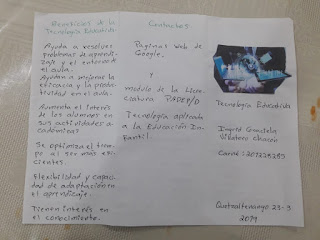 Beneficios de la
Tecnología Educativa
Ayuda a resolver
problemas de aprendi-
zaje y el entorno de
el aula.
Ayudan a mejorar la
eficacia y la produc-
tividad en el aula.
Aumenta el interés
de los alumnos en
sus actividades a-
cadémicas
Se optimiza el tiem-
po al ser más efi-
cientes.
Flexibilidad y capaci-
dad de adaptación en
el aprendizaje.
Tienen interés en
el conocimiento.
Contactos.
Paginas Web de
Google.
y
modulo de la Licen-
ciatura PADEP/D
Tecnología aplicada
a la Educación In-
fantil.
Tecnología Educativa
Ingrid Graciela
Chacón
Carné: 201235285
Quetzaltenango 23-3
2019